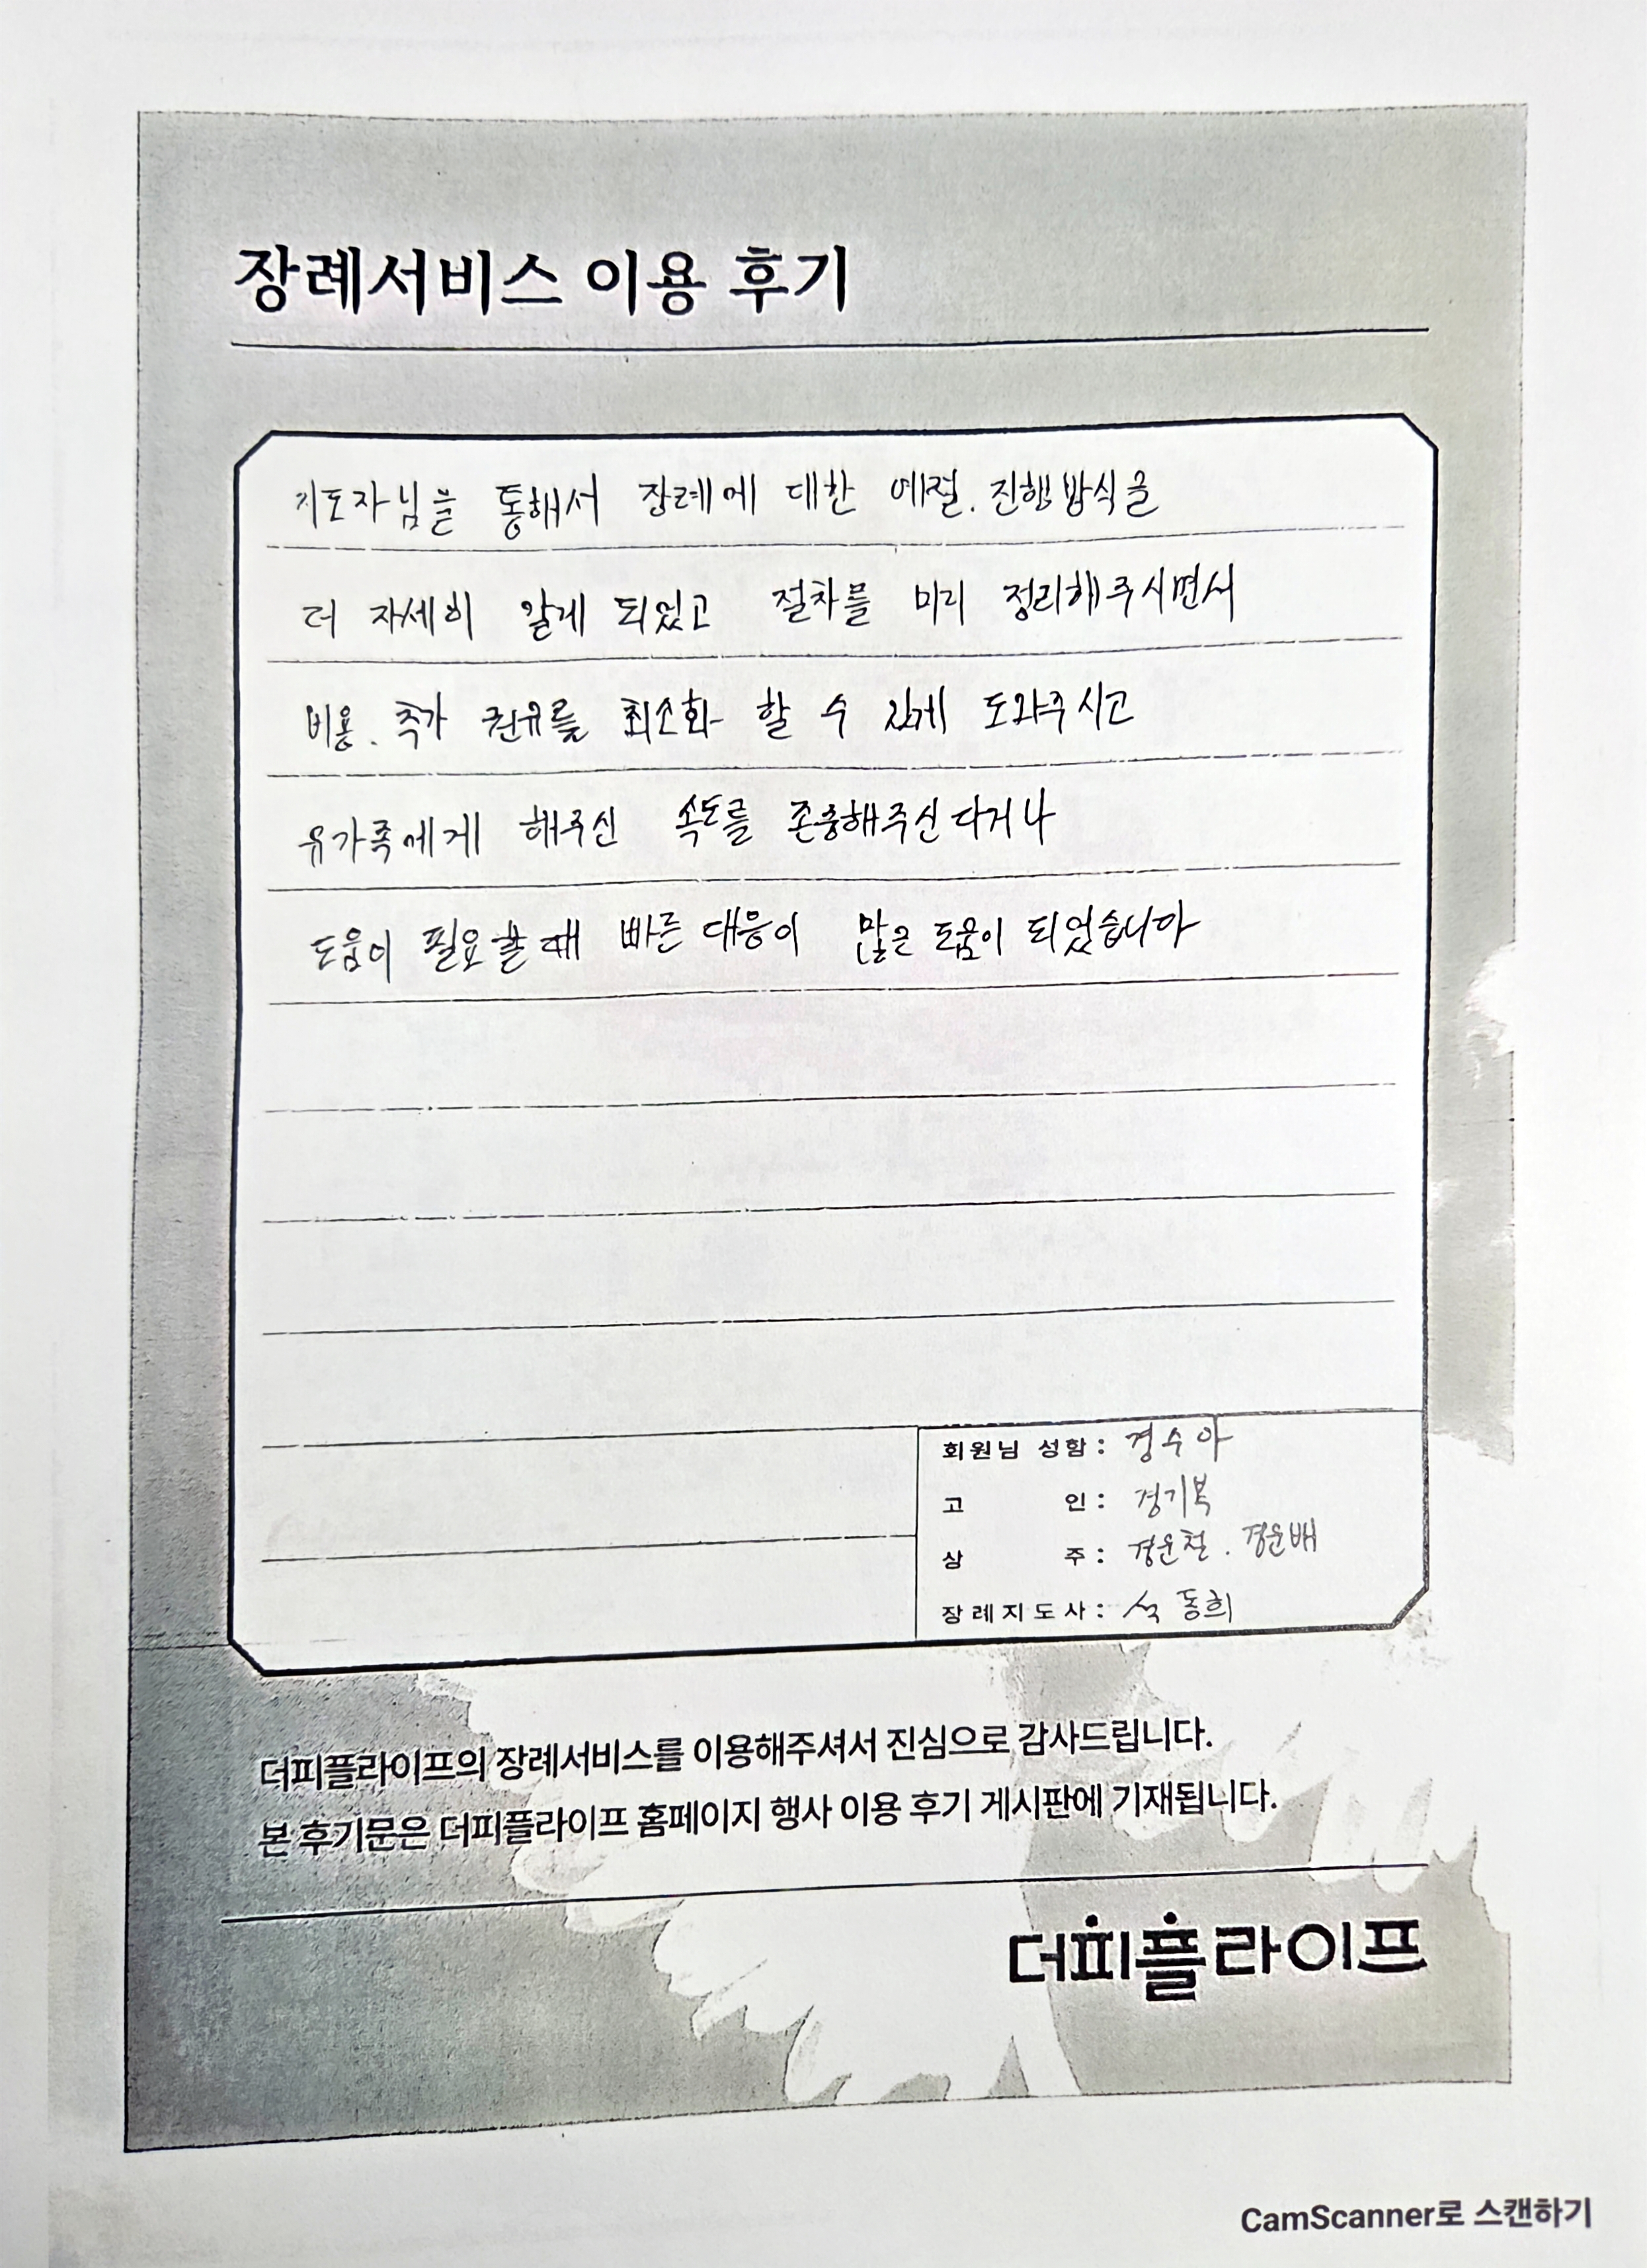 장례서비스 이용 후기
지도자님을 통해서 장례에 대한 예절. 진행방식을
더 자세히 알게 되었고 절차를 미리 정리해주시면서
비용. 추가 권유를 최소화 할 수 있게 도와주시고
유가족에게 해주신 속도를 존중해주신다거나
도움이 필요할때 빠른 대응이 많은 도움이 되었습니다
회원님 성함 : 경수아
고 인 : 경기복
상 주 : 경운철 . 경운배
장례지도사 : 석동희
더피플라이프의 장례서비스를 이용해주셔서 진심으로 감사드립니다.
본 후기문은 더피플라이프 홈페이지 행사 이용 후기 게시판에 기재됩니다.
더피플라이프
CamScanner로 스캔하기